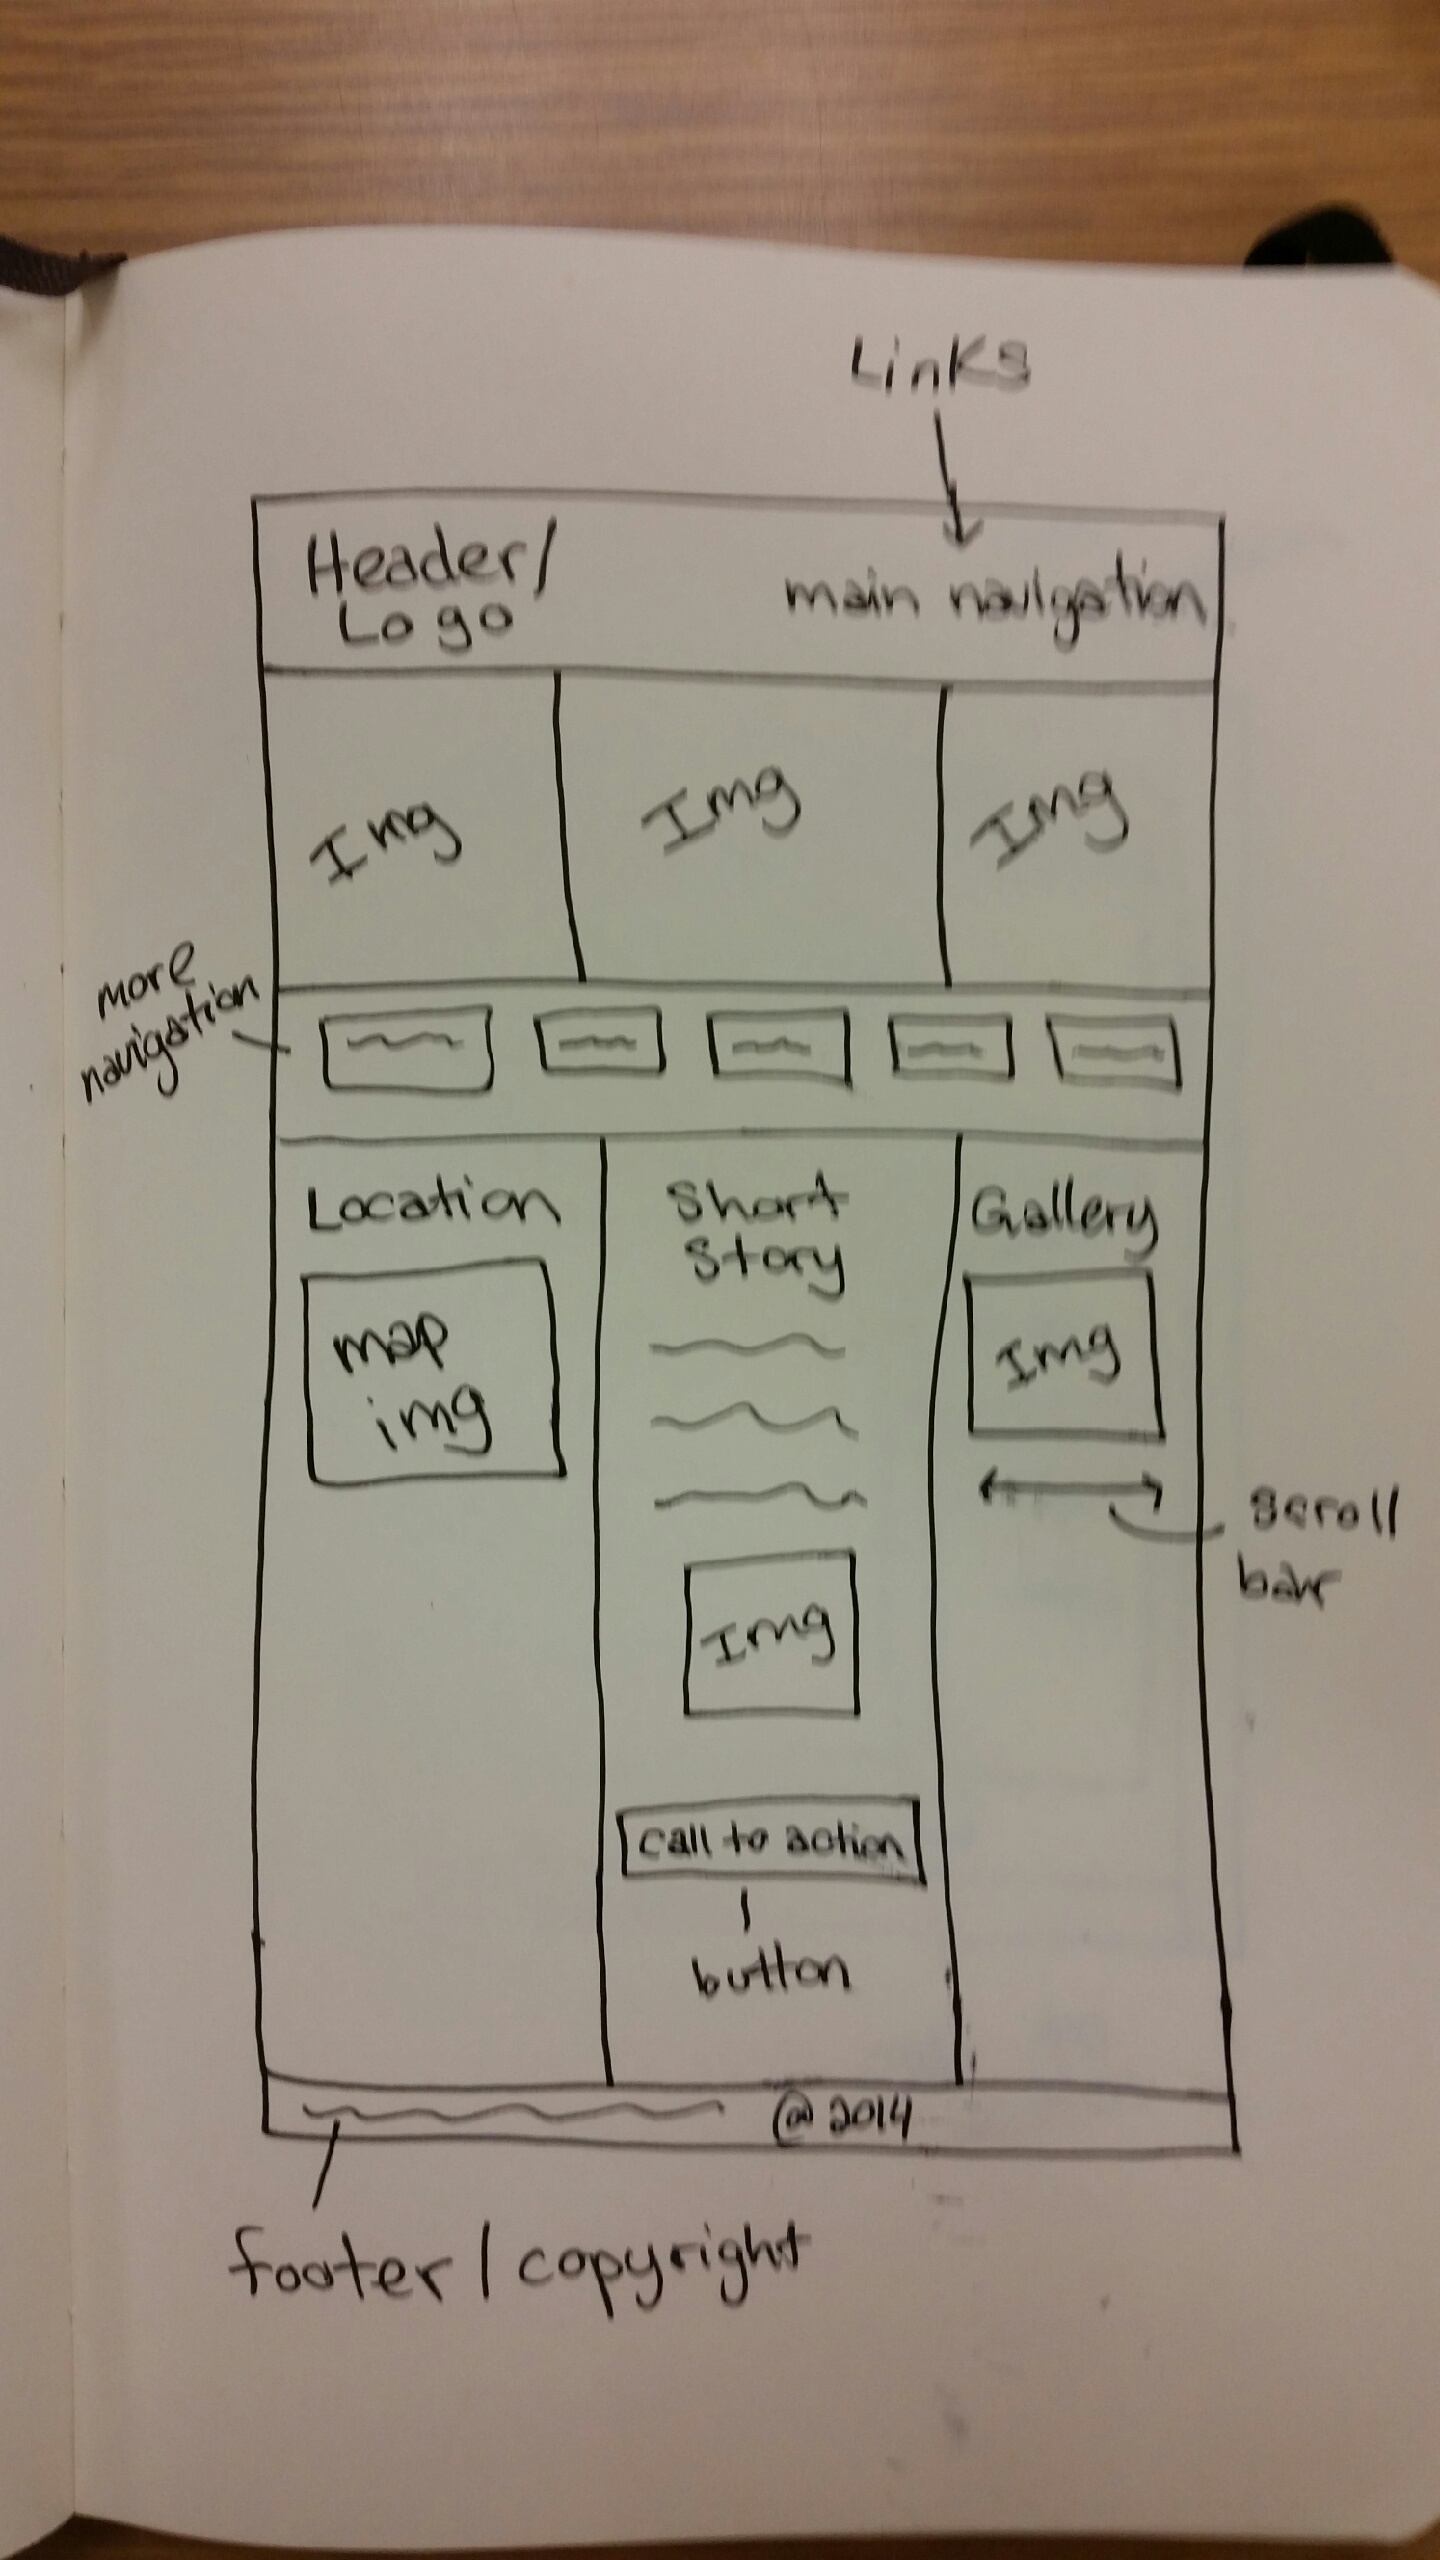 Links
Header/
Logo
main navigation
Img
Img
Img
more
navigation
Location
map
img
Short
Story
Img
call to action
button
Gallery
Img
scroll
bar
@ 2014
footer / copyright